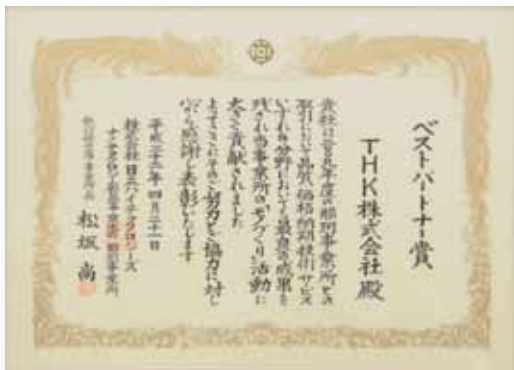 ベストパートナー賞
THK株式会社殿
貴社は二〇〇九年度の那珂事業所との
取引において品質、価格、納期、技術、サービス
いずれの分野においても最良の成果を
残され当事業所の「モノづくり」活動に
大きく貢献されました
よってここにそのご努力とご協力に対し
心から感謝し表彰いたします
平成二十二年四月二十一日
株式会社日立ハイテクノロジーズ
ナノテクノロジー製品事業本部 那珂事業所
松坂 尚